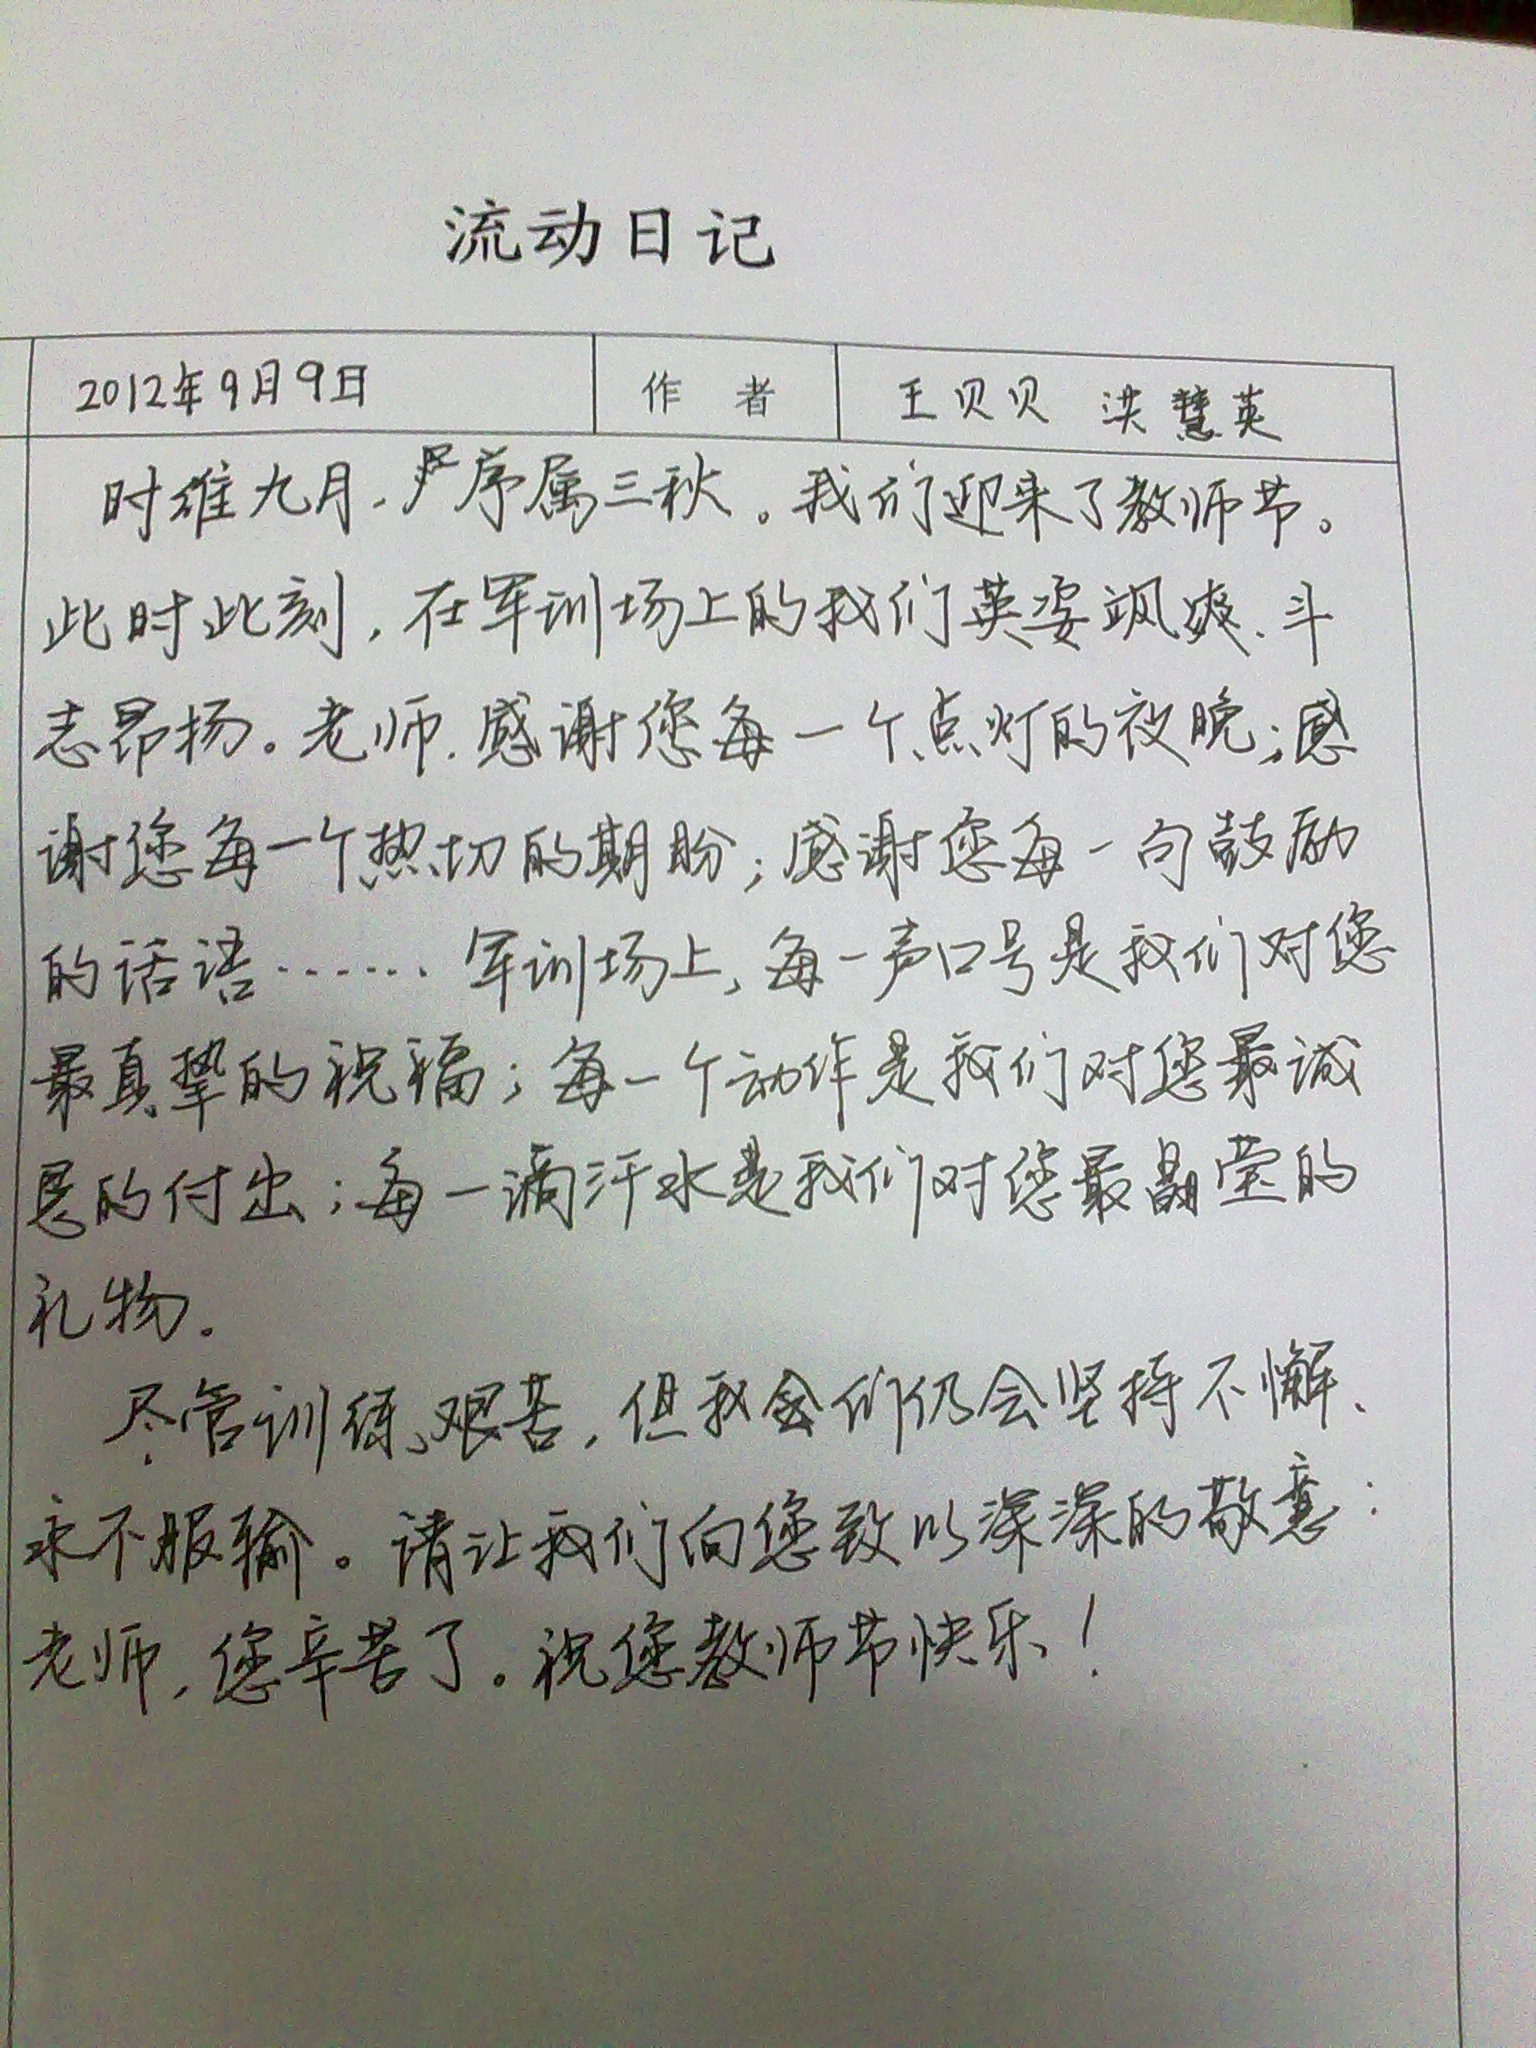 流动日记
2012年9月9日 作者 王贝贝 洪慧英
时维九月，序属三秋。我们迎来了教师节。
此时此刻，在军训场上的我们英姿飒爽、斗
志昂扬。老师，感谢您每一个点灯的夜晚；感
谢您每一个热切的期盼；感谢您每一句鼓励
的话语……军训场上，每一声口号是我们对您
最真挚的祝福；每一个动作是我们对您最诚
恳的付出；每一滴汗水是我们对您最晶莹的
礼物。
尽管训练艰苦，但我们仍会坚持不懈、
永不服输。请让我们向您致以深深的敬意：
老师，您辛苦了。祝您教师节快乐！